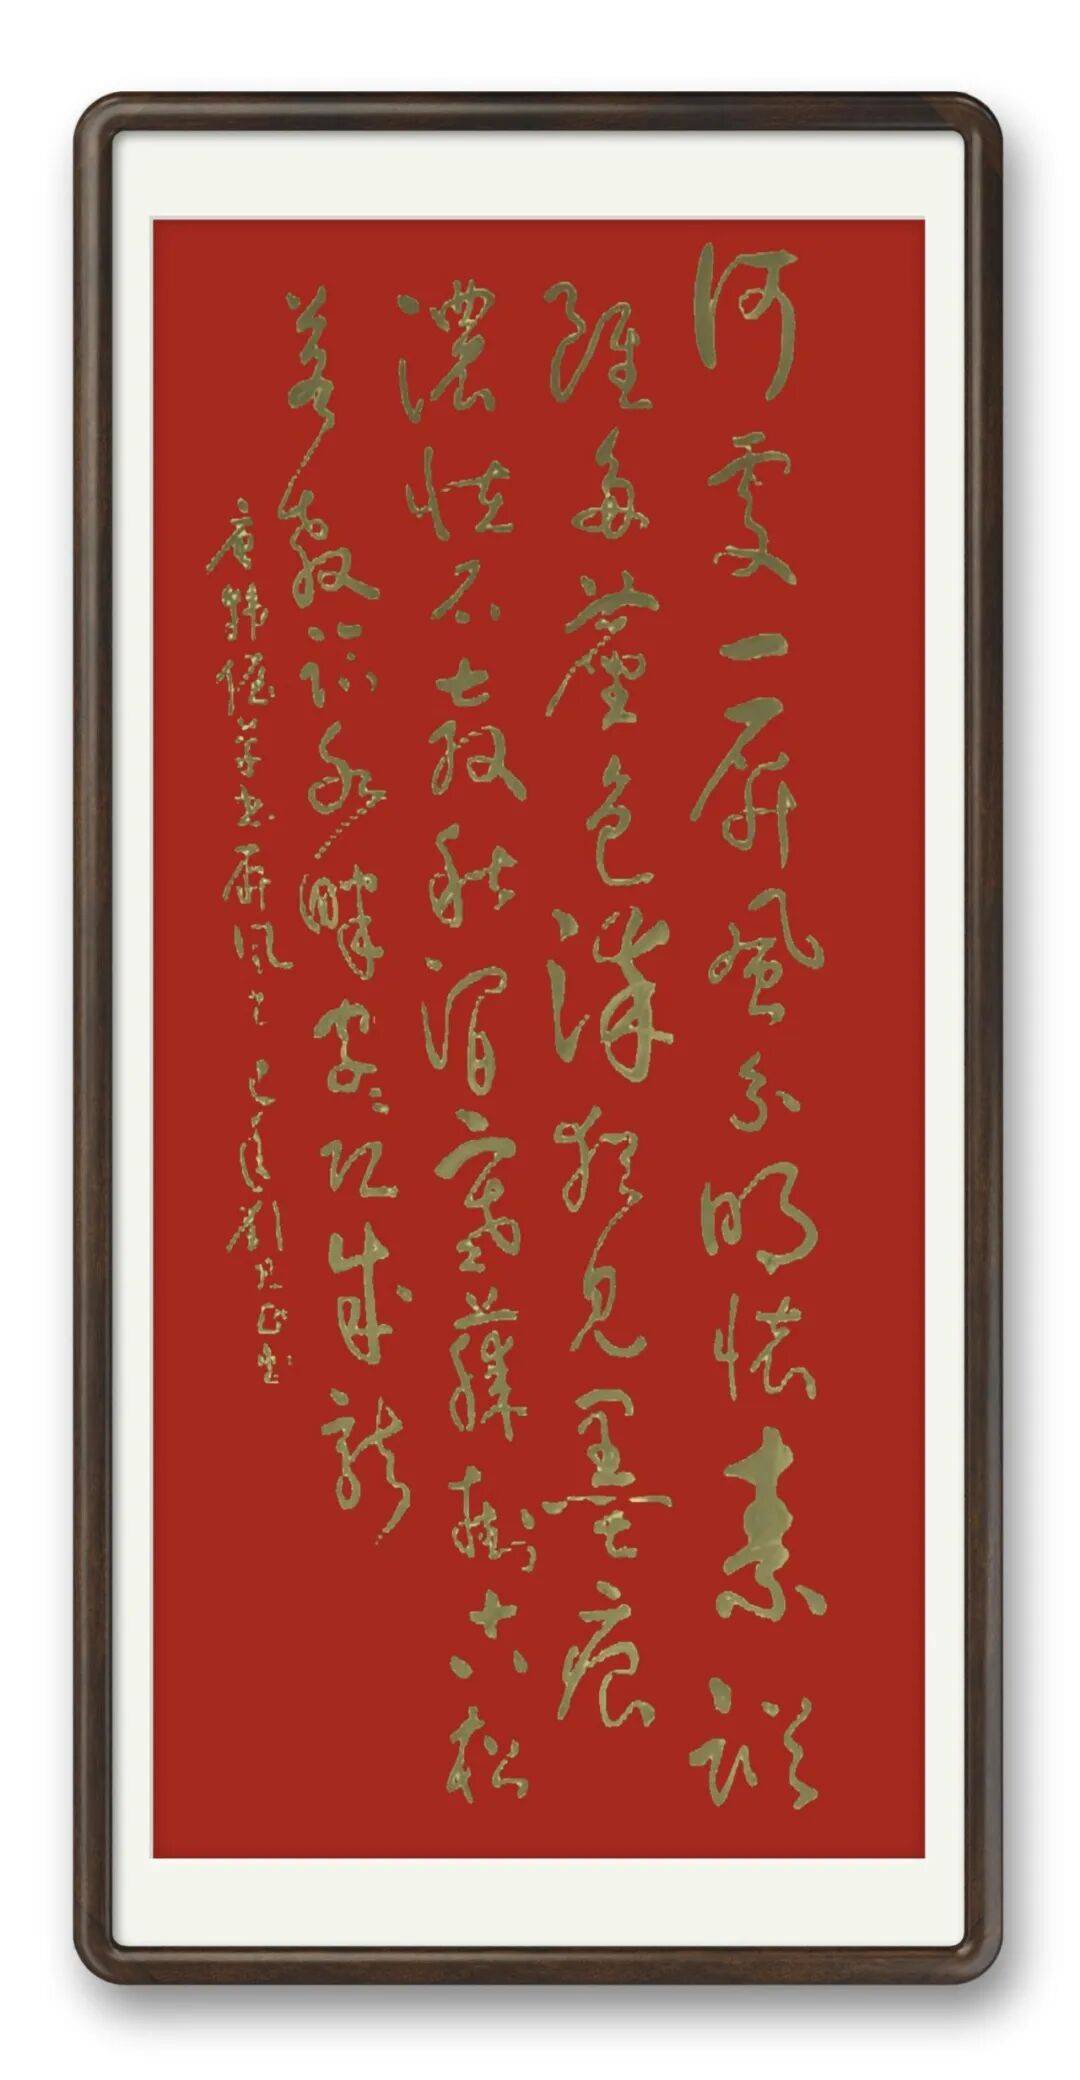 何處一屏風分明懷素蹤
雖多塵色染猶見墨痕
濃怪石奔秋澗寒藤掛古松
若教臨水畔字字恐成龍
唐韓偓草書屏風 劉 書